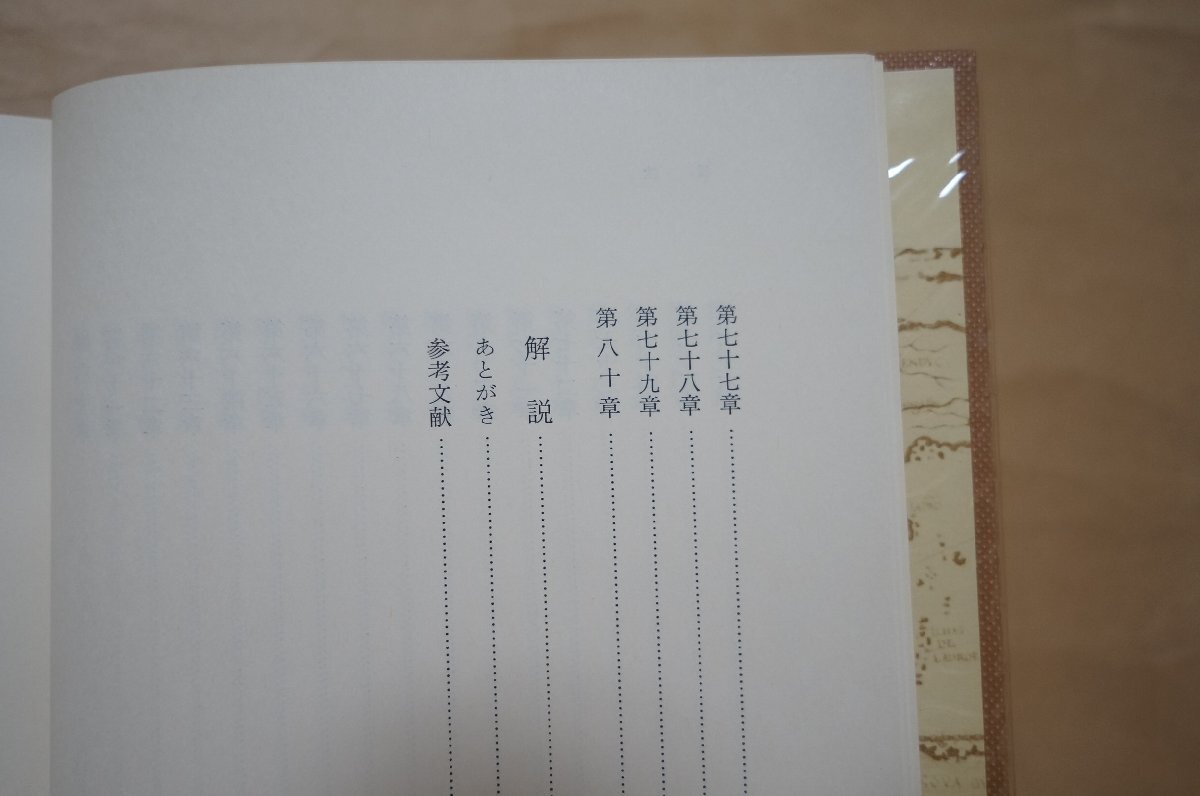 第七十七章
第七十八章
第七十九章
第八十章
解説
あとがき
参考文献